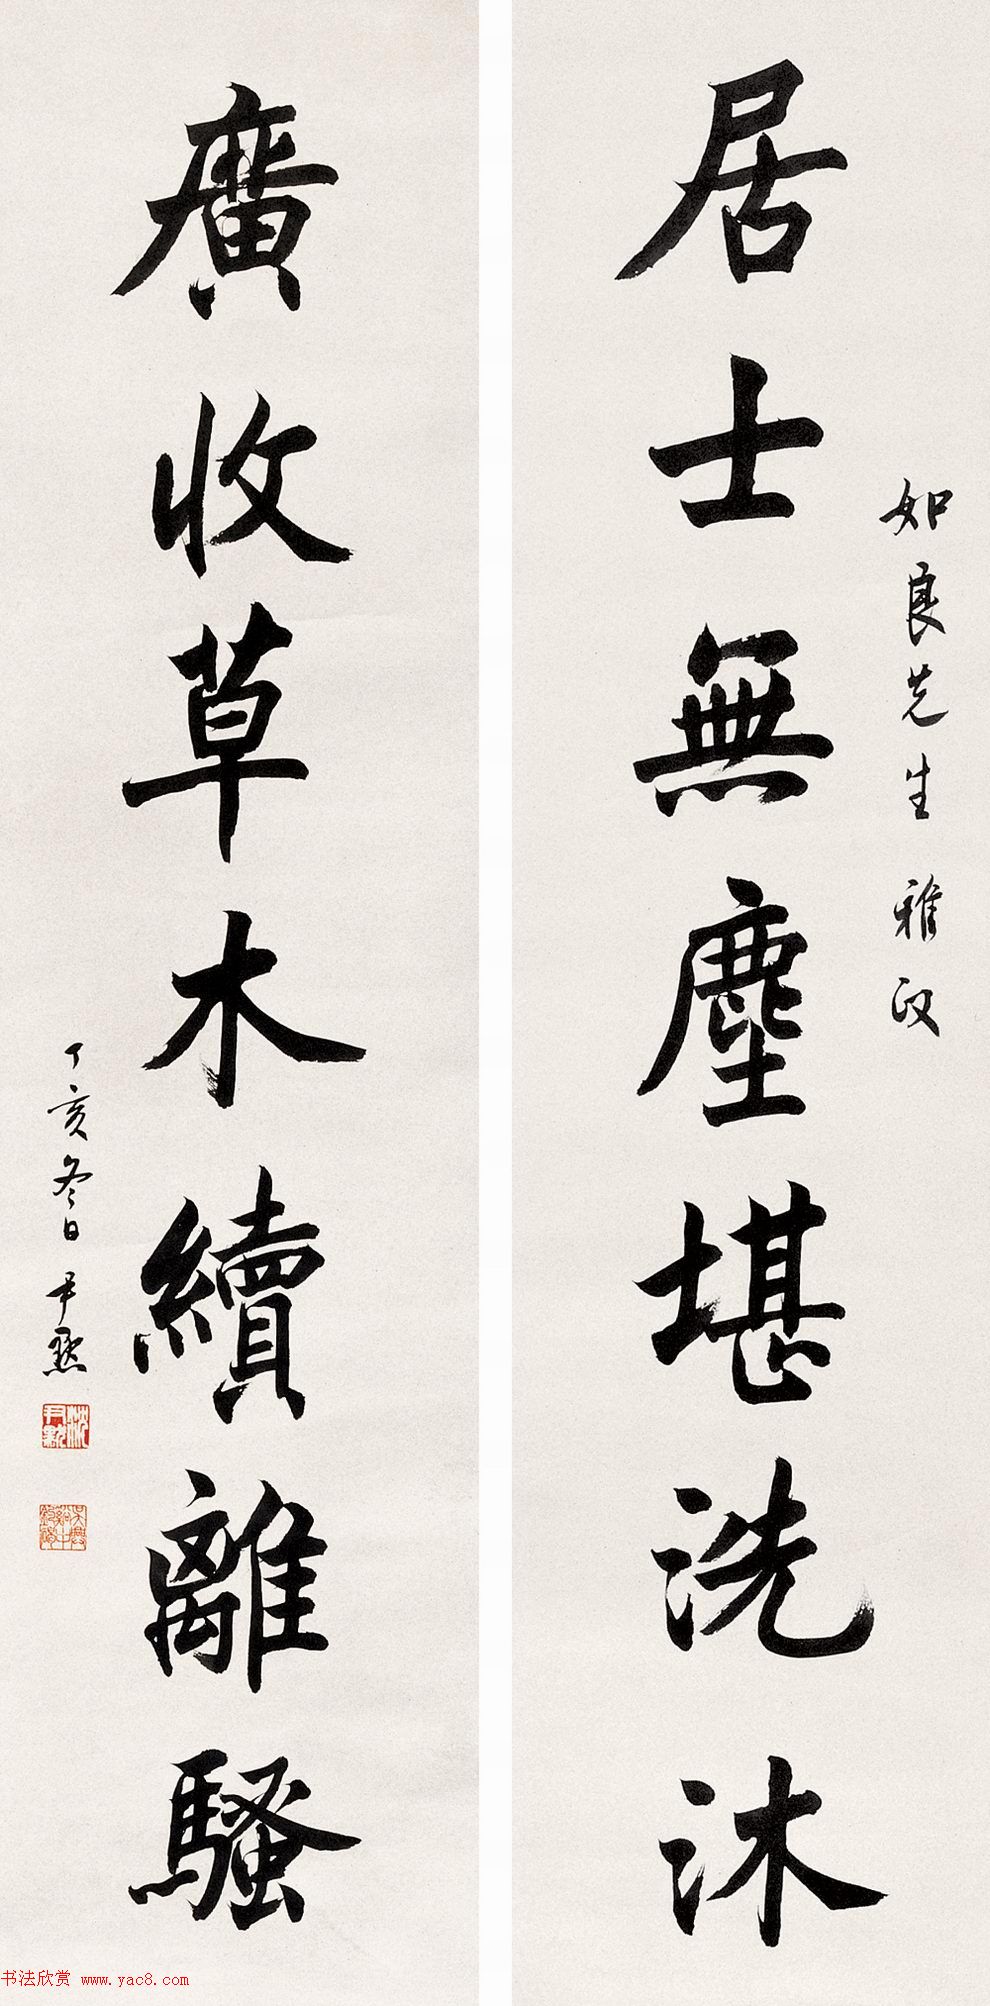 如良先生 雅政
居士無塵堪洗沐
廣收草木續離騷
丁亥冬日 尹默
沈尹默
书法欣赏 www.yac8.com